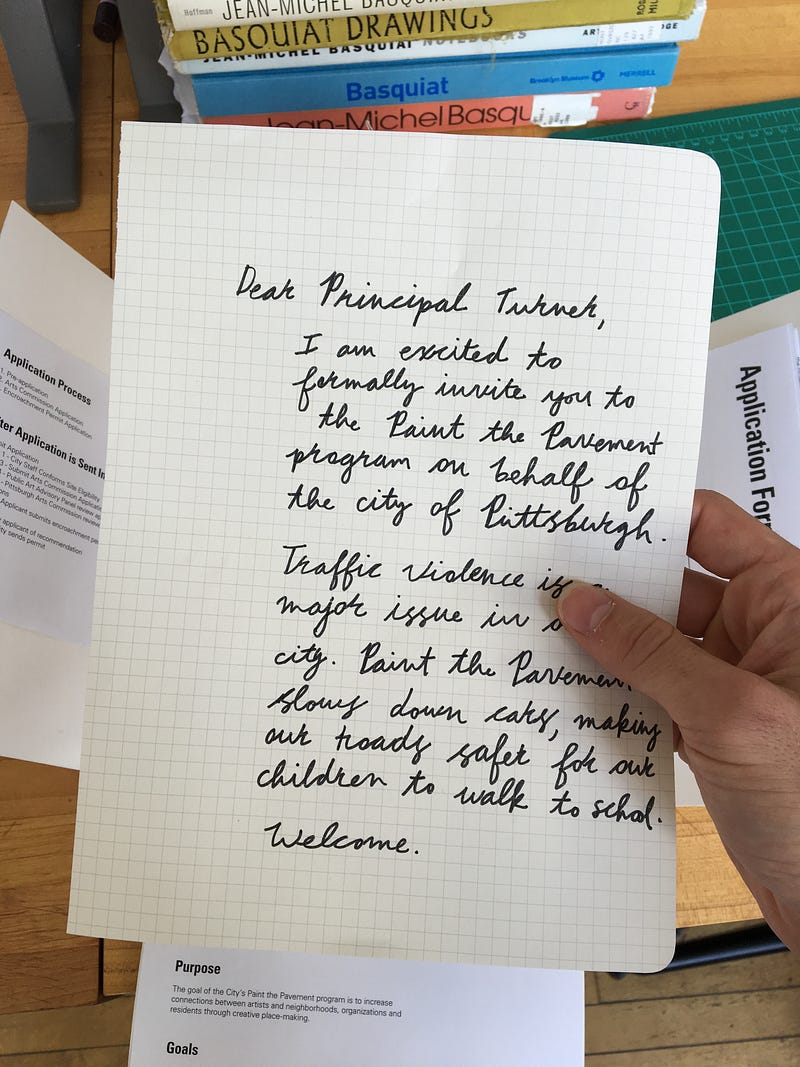 Hoffman JEAN-MICHEL BASQUIAT
BASQUIAT DRAWINGS
JEAN-MICHEL BASQUIAT NOTEBOOKS
Basquiat Brooklyn Museum MERRELL
Jean-Michel Basqu
Dear Principal Turner,
I am excited to
formally invite you to
the Paint the Pavement
program on behalf of
the city of Pittsburgh.
Traffic violence is
major issue in
city. Paint the Pavement
slows down cars, making
our roads safer for our
children to walk to school.
Welcome.
Application Process
1. Pre-application
2. Arts Commission Application
Encroachment Permit Application
ter Application is Sent In
1 - City Staff Conforms Site Eligibility
3 - Submit Arts Commission Application
- Public Art Advisory Panel review
- Pittsburgh Arts Commission review
Applicant submits encroachment
applicant of recommendation
ty sends permit
Application For
Purpose
The goal of the City's Paint the Pavement program is to increase
connections between artists and neighborhoods, organizations and
residents through creative place-making.
Goals